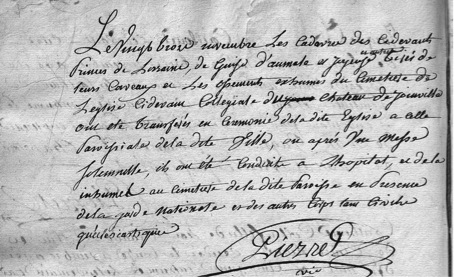 Le Vingt trois novembre Les Cadavres des Cidevant
Princes de Lorraine, de Guise d'aumale et joyeuse
leurs Caveaux et Les ossements exhumés du Cimetiere de
Leglise Cidevant Collegiale du Chateau de joinville
ont été transferés en Ceremonie de la dite Eglise a celle
Paroissiale de la dite Ville, ou apres Une Messe
Solemnelle, ils ont été Conduits a Lhopital, et de la
inhumés au Cimetiere de la dite Paroisse en Presence
de la garde nationale et des autres Corps tant Civils
Pierret